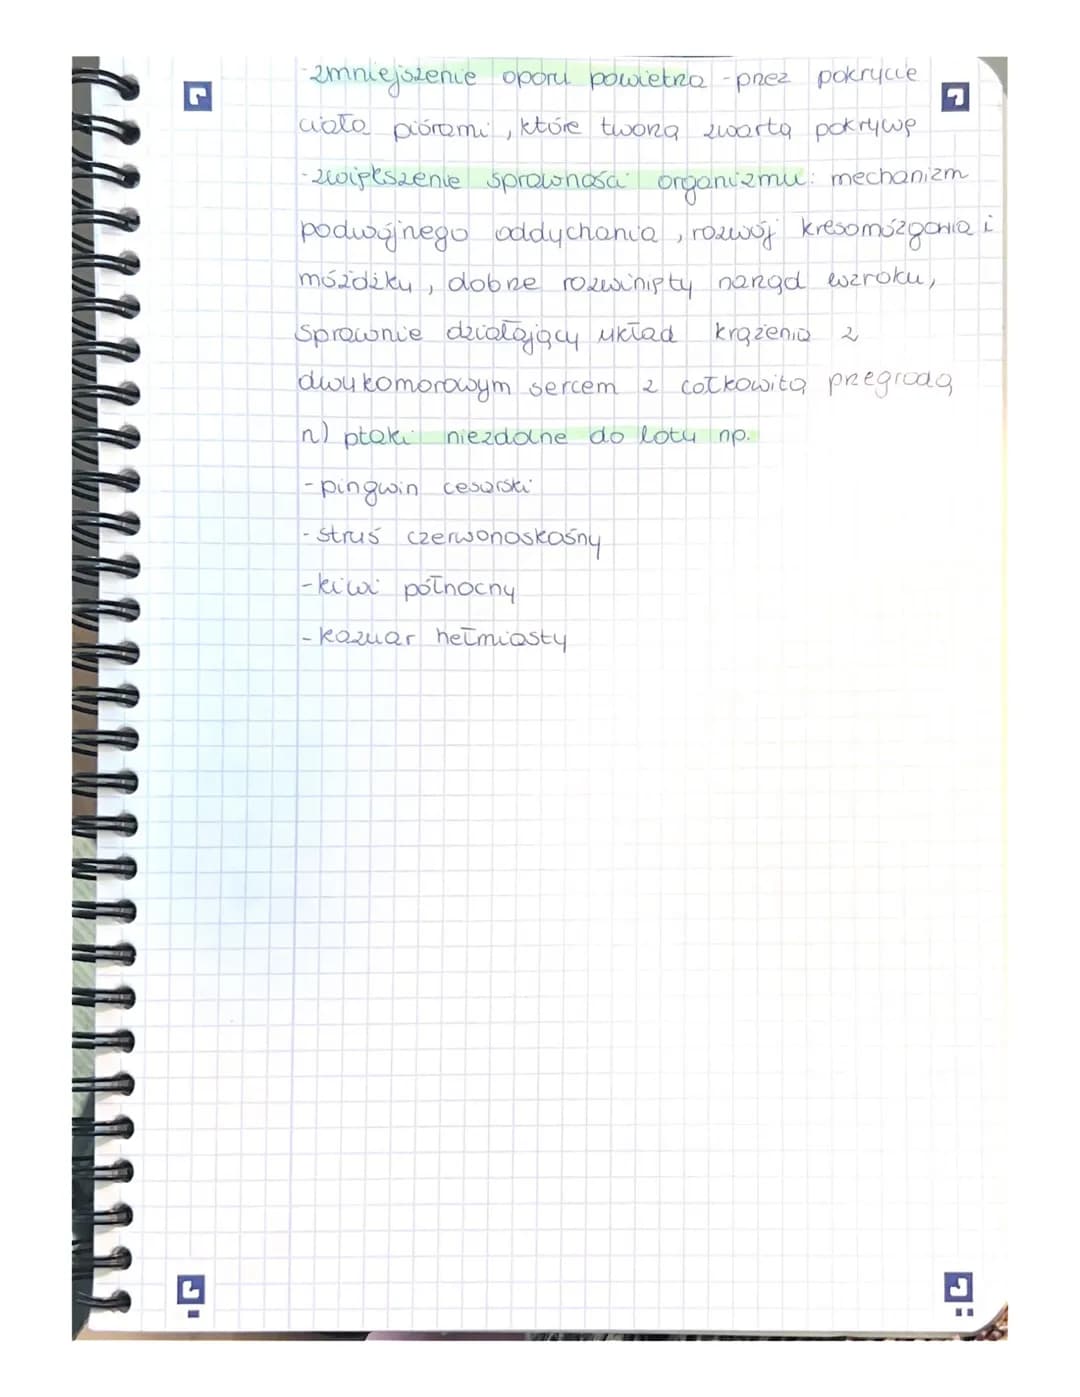 -zmniejszenie oporu powietrza - przez pokrycie
ciała piórami, które tworzą zwartą pokrywę
-zwiększenie sprawności organizmu: mechanizm
podwójnego oddychania, rozwój kresomózgowia i
móżdżku, dobrze rozwinięty narząd wzroku,
sprawnie działający układ krążenia z
dwukomorowym sercem z całkowitą przegrodą
n) ptaki niezdolne do lotu np.
-pingwin cesarski
-struś czerwonoskóśny
-kiwi północny
-kazuar hełmiasty